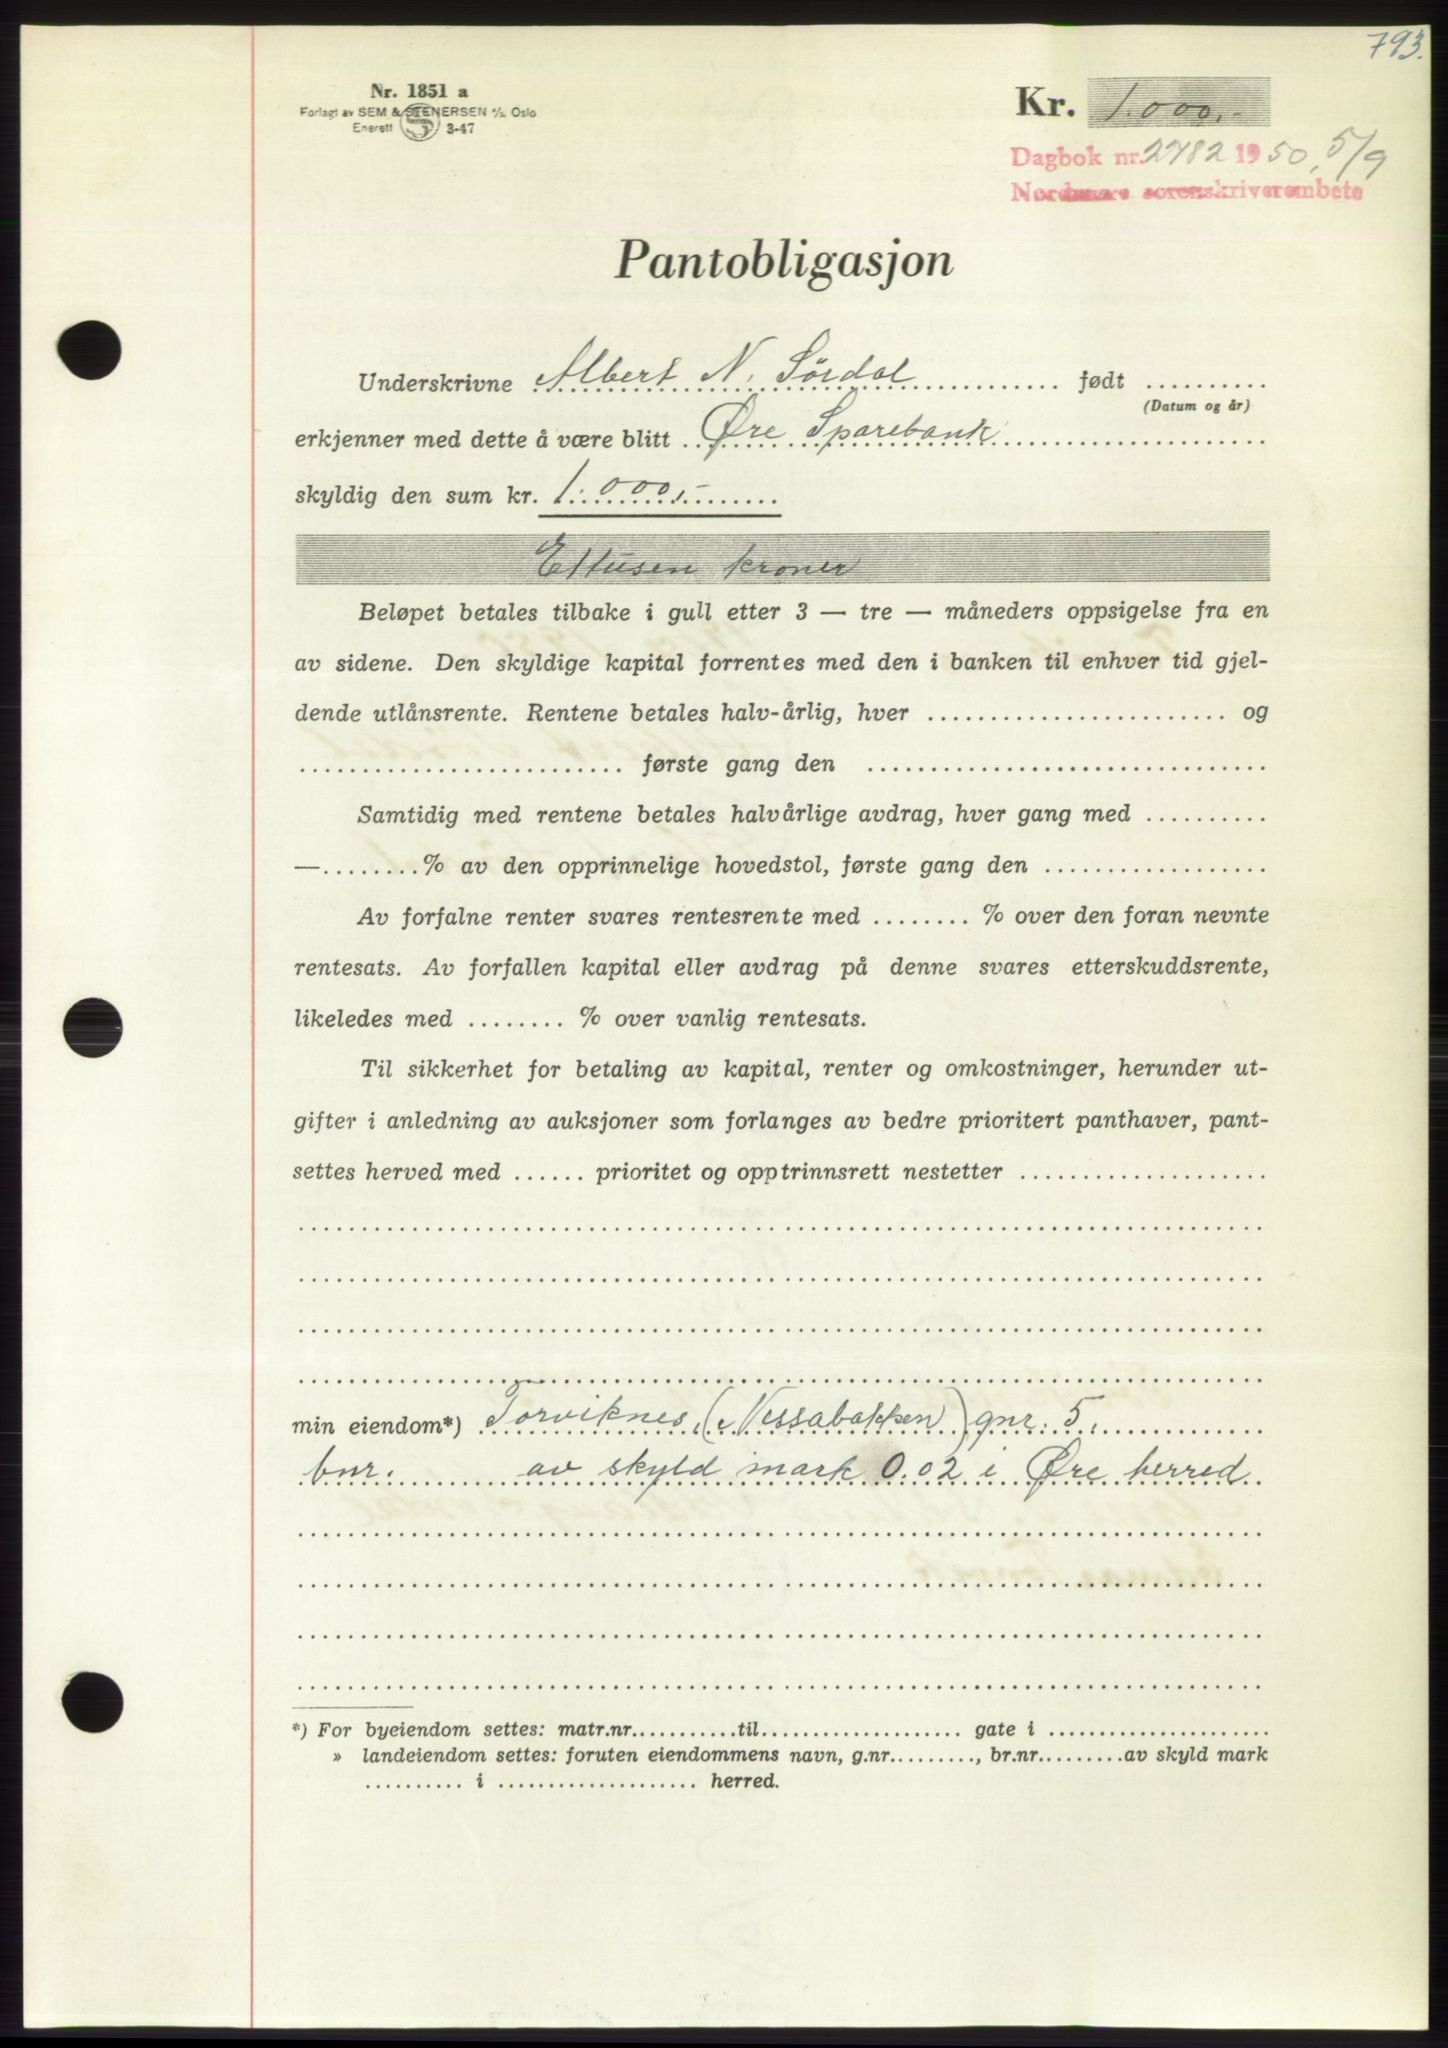 793.
Nr. 1851 a
Forlagt av SEM & STENERSEN A/S Oslo
Enerett 3-47
Kr. 1.000,-
Dagbok nr. 2782 1950, 5/9
Nordmøre sorenskriverembete
Pantobligasjon
Underskrivne Albert N. Sördal født ..........
(Datum og år)
erkjenner med dette å være blitt Øre Sparebank
skyldig den sum kr. 1.000,-
Ettusen kroner
Beløpet betales tilbake i gull etter 3 — tre — måneders oppsigelse fra en
av sidene. Den skyldige kapital forrentes med den i banken til enhver tid gjel-
dende utlånsrente. Rentene betales halv-årlig, hver ........................ og
.......................... første gang den ................................
Samtidig med rentene betales halvårlige avdrag, hver gang med ..........
—........% av den opprinnelige hovedstol, første gang den ..................
Av forfalne renter svares rentesrente med ........ % over den foran nevnte
rentesats. Av forfallen kapital eller avdrag på denne svares etterskuddsrente,
likeledes med ........ % over vanlig rentesats.
Til sikkerhet for betaling av kapital, renter og omkostninger, herunder ut-
gifter i anledning av auksjoner som forlanges av bedre prioritert panthaver, pant-
settes herved med ...... prioritet og opptrinnsrett nestetter ....................
min eiendom*) Torviknes, (Nessabakken) gnr. 5.
bnr. av skyld mark 0.02 i Øre herred
*) For byeiendom settes: matr.nr...........til.................... gate i ......................
» landeiendom settes: foruten eiendommens navn, g.nr........., br.nr.........av skyld mark
.......... i .................... herred.